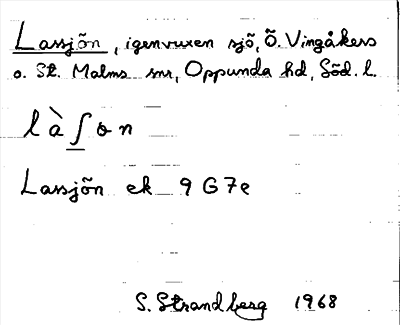 Lassjön, igenvuxen sjö, Ö. Vingåkers
o. St. Malms snr, Oppunda hd, Söd. l.
l à ʃ o n
Lassjön ek 9 G 7e
S. Strandberg 1968